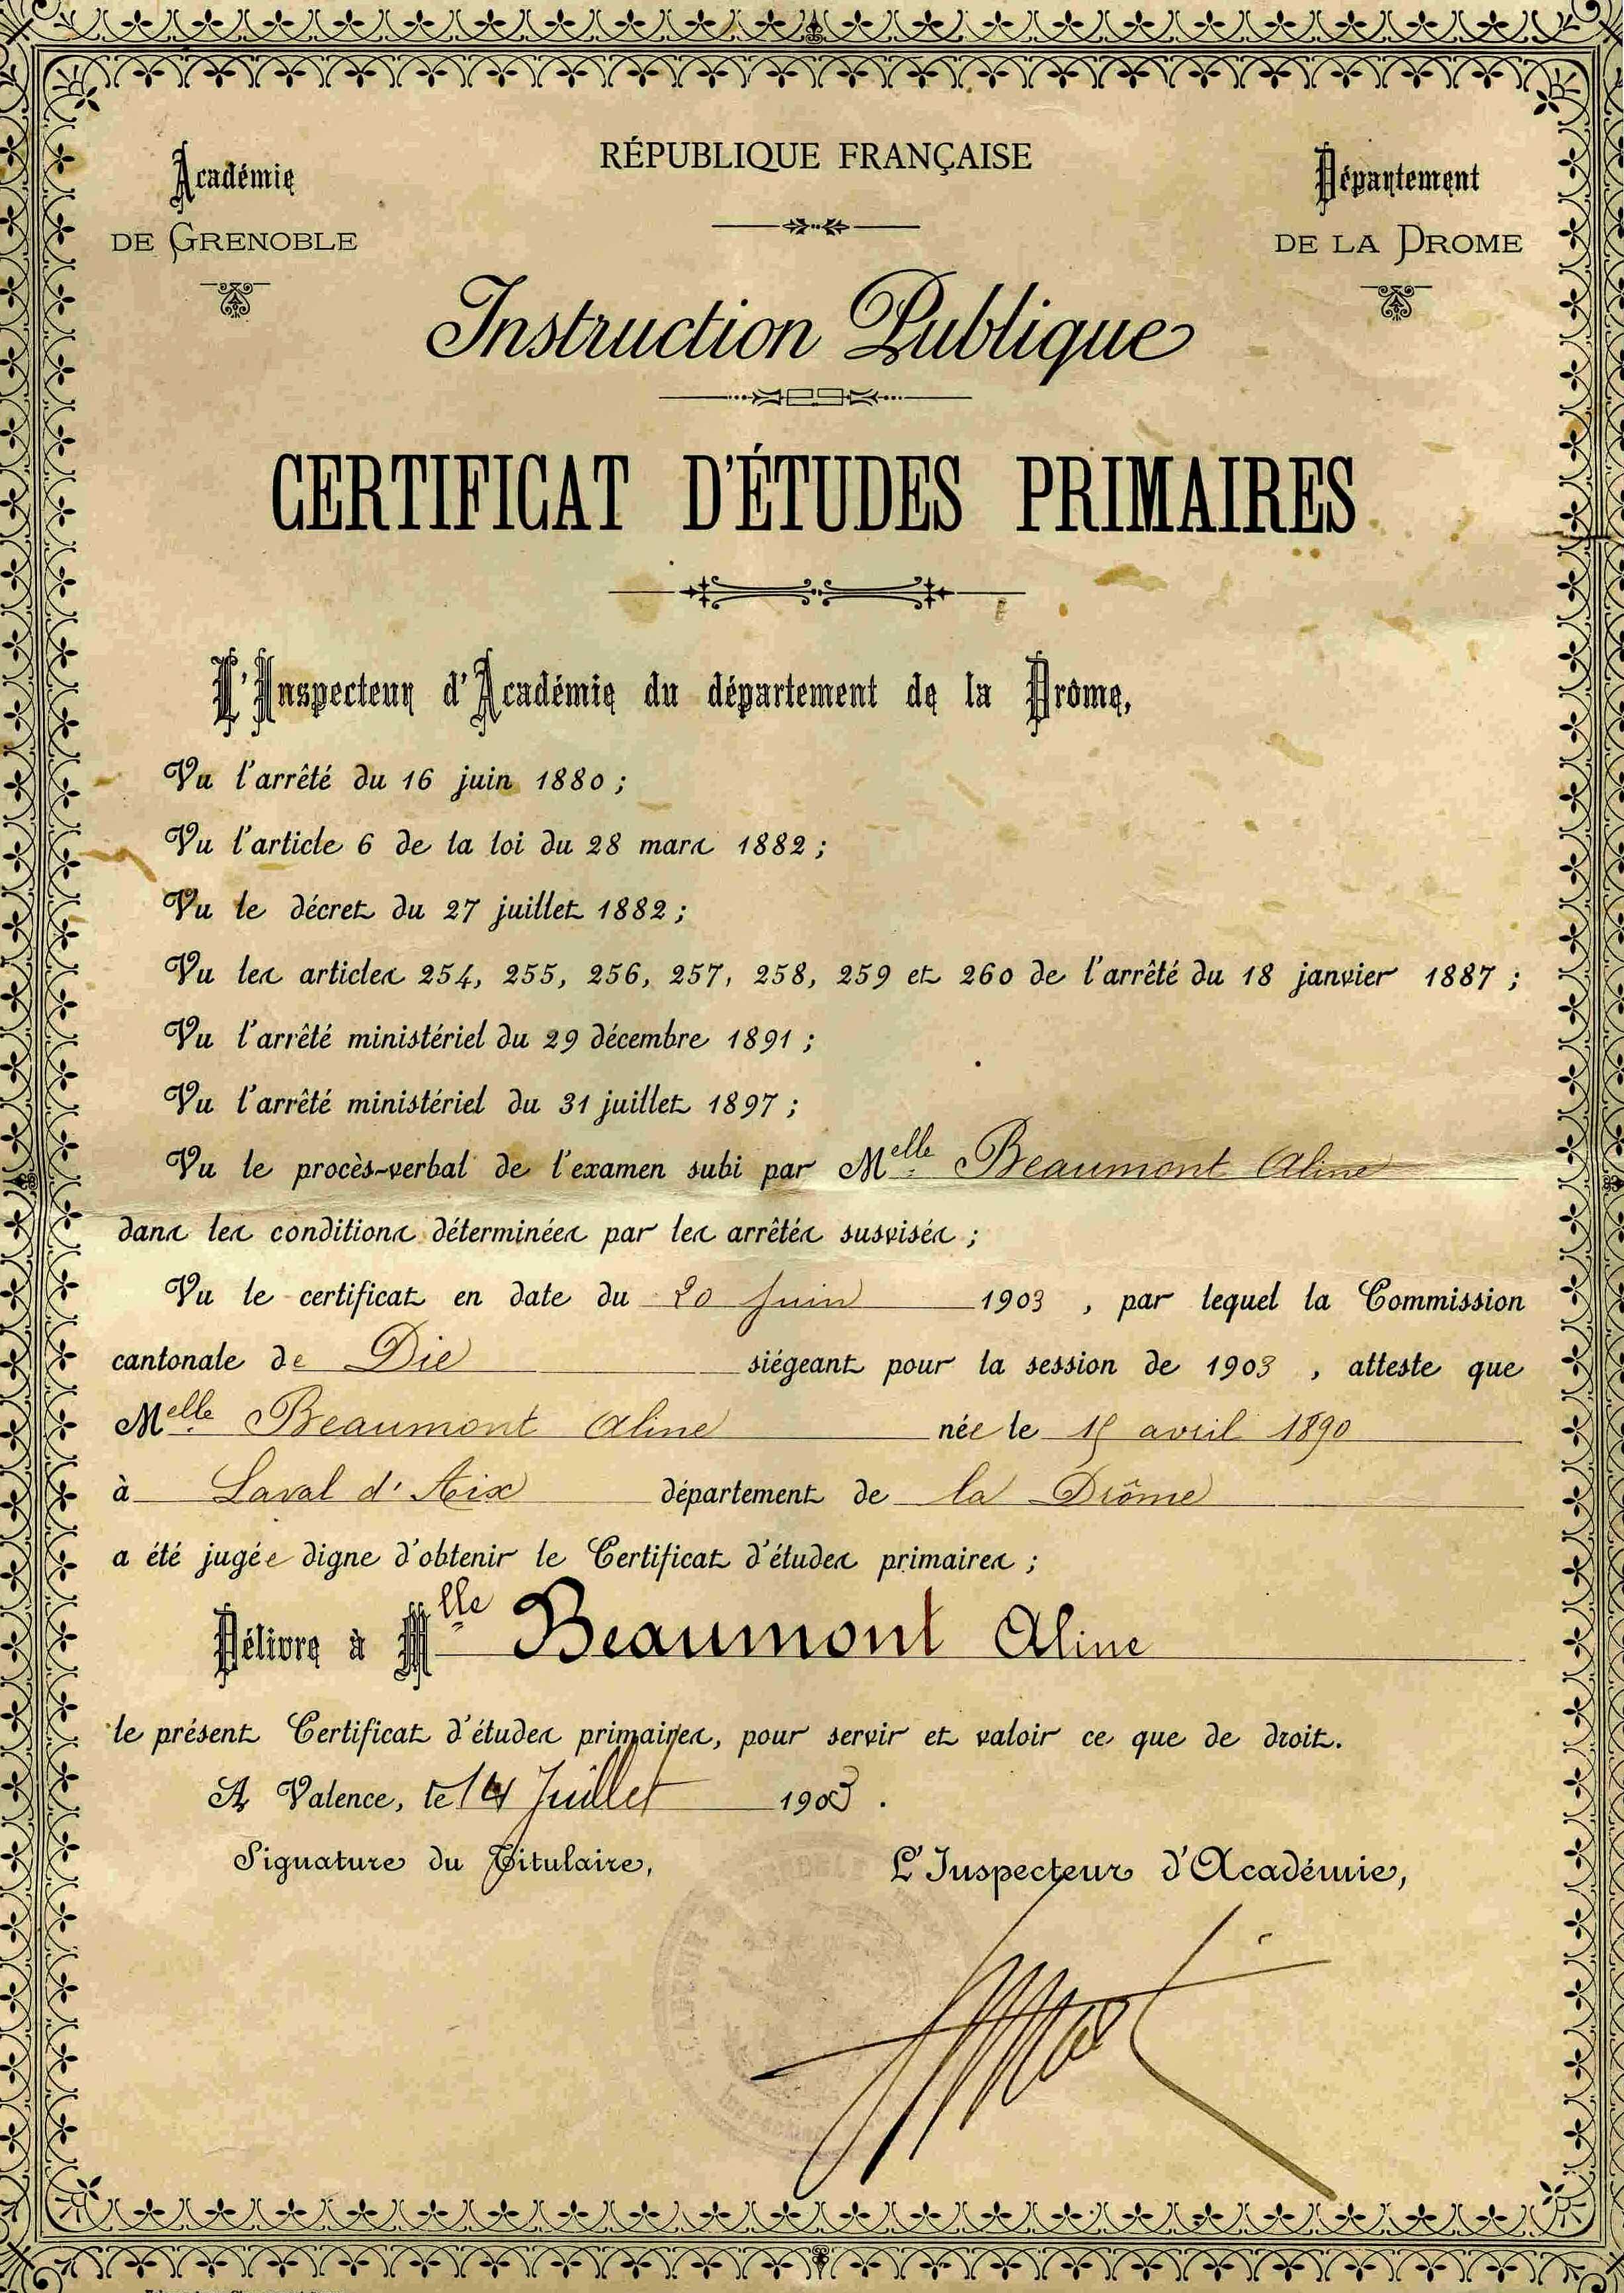 RÉPUBLIQUE FRANÇAISE
Académie
DE GRENOBLE
Département
DE LA DROME
Instruction Publique
CERTIFICAT D'ÉTUDES PRIMAIRES
L'Inspecteur d'Académie du département de la Drôme,
Vu l'arrêté du 16 juin 1880 ;
Vu l'article 6 de la loi du 28 mars 1882 ;
Vu le décret du 27 juillet 1882 ;
Vu les articles 254, 255, 256, 257, 258, 259 et 260 de l'arrêté du 18 janvier 1887 ;
Vu l'arrêté ministériel du 29 décembre 1891 ;
Vu l'arrêté ministériel du 31 juillet 1897 ;
Vu le procès-verbal de l'examen subi par Melle Beaumont Aline
dans les conditions déterminées par les arrêtés susvisés ;
Vu le certificat en date du 20 Juin 1903 , par lequel la Commission
cantonale de Die siégeant pour la session de 1903 , atteste que
Melle Beaumont Aline née le 15 avril 1890
à Laval d'Aix département de la Drôme
a été jugée digne d'obtenir le Certificat d'études primaires ;
Délivre à Mlle Beaumont Aline
le présent Certificat d'études primaires, pour servir et valoir ce que de droit.
A Valence, le 14 Juillet 1903 .
Signature du Titulaire,
L'Inspecteur d'Académie,